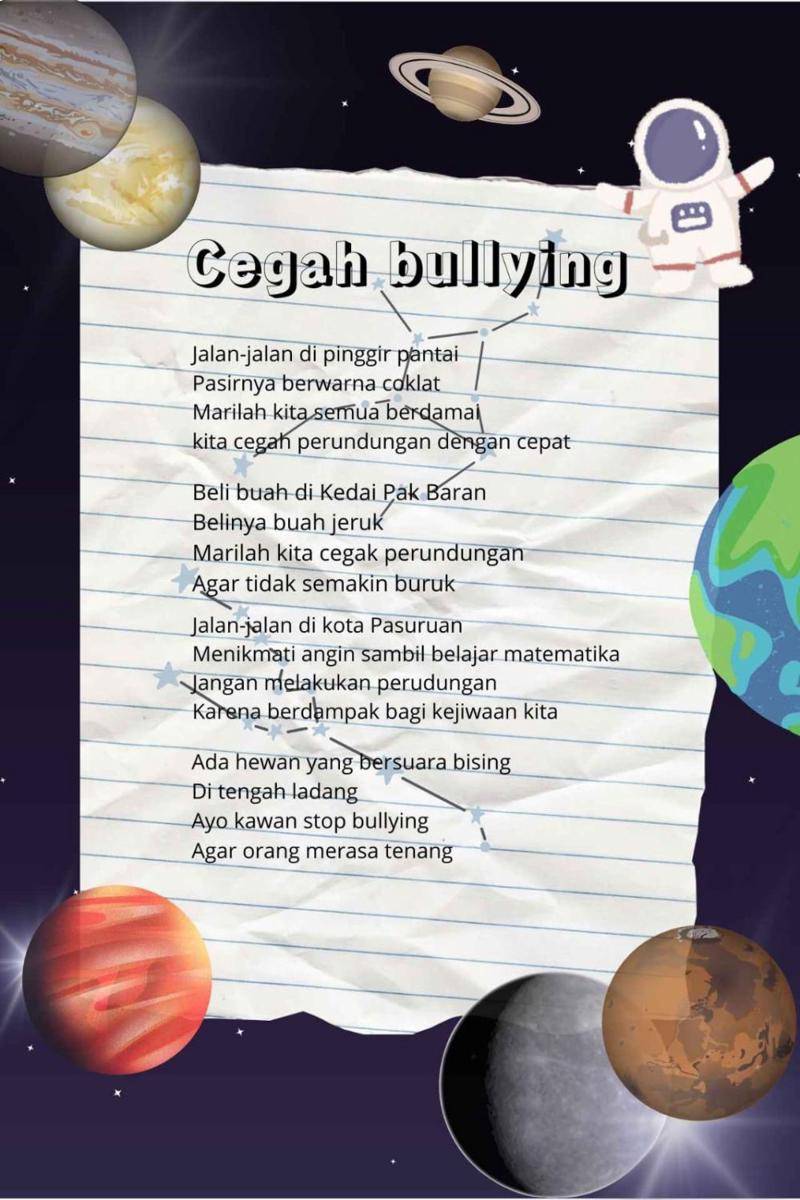 Cegah bullying
Jalan-jalan di pinggir pantai
Pasirnya berwarna coklat
Marilah kita semua berdamai
kita cegah perundungan dengan cepat
Beli buah di Kedai Pak Baran
Belinya buah jeruk
Marilah kita cegak perundungan
Agar tidak semakin buruk
Jalan-jalan di kota Pasuruan
Menikmati angin sambil belajar matematika
Jangan melakukan perudungan
Karena berdampak bagi kejiwaan kita
Ada hewan yang bersuara bising
Di tengah ladang
Ayo kawan stop bullying
Agar orang merasa tenang